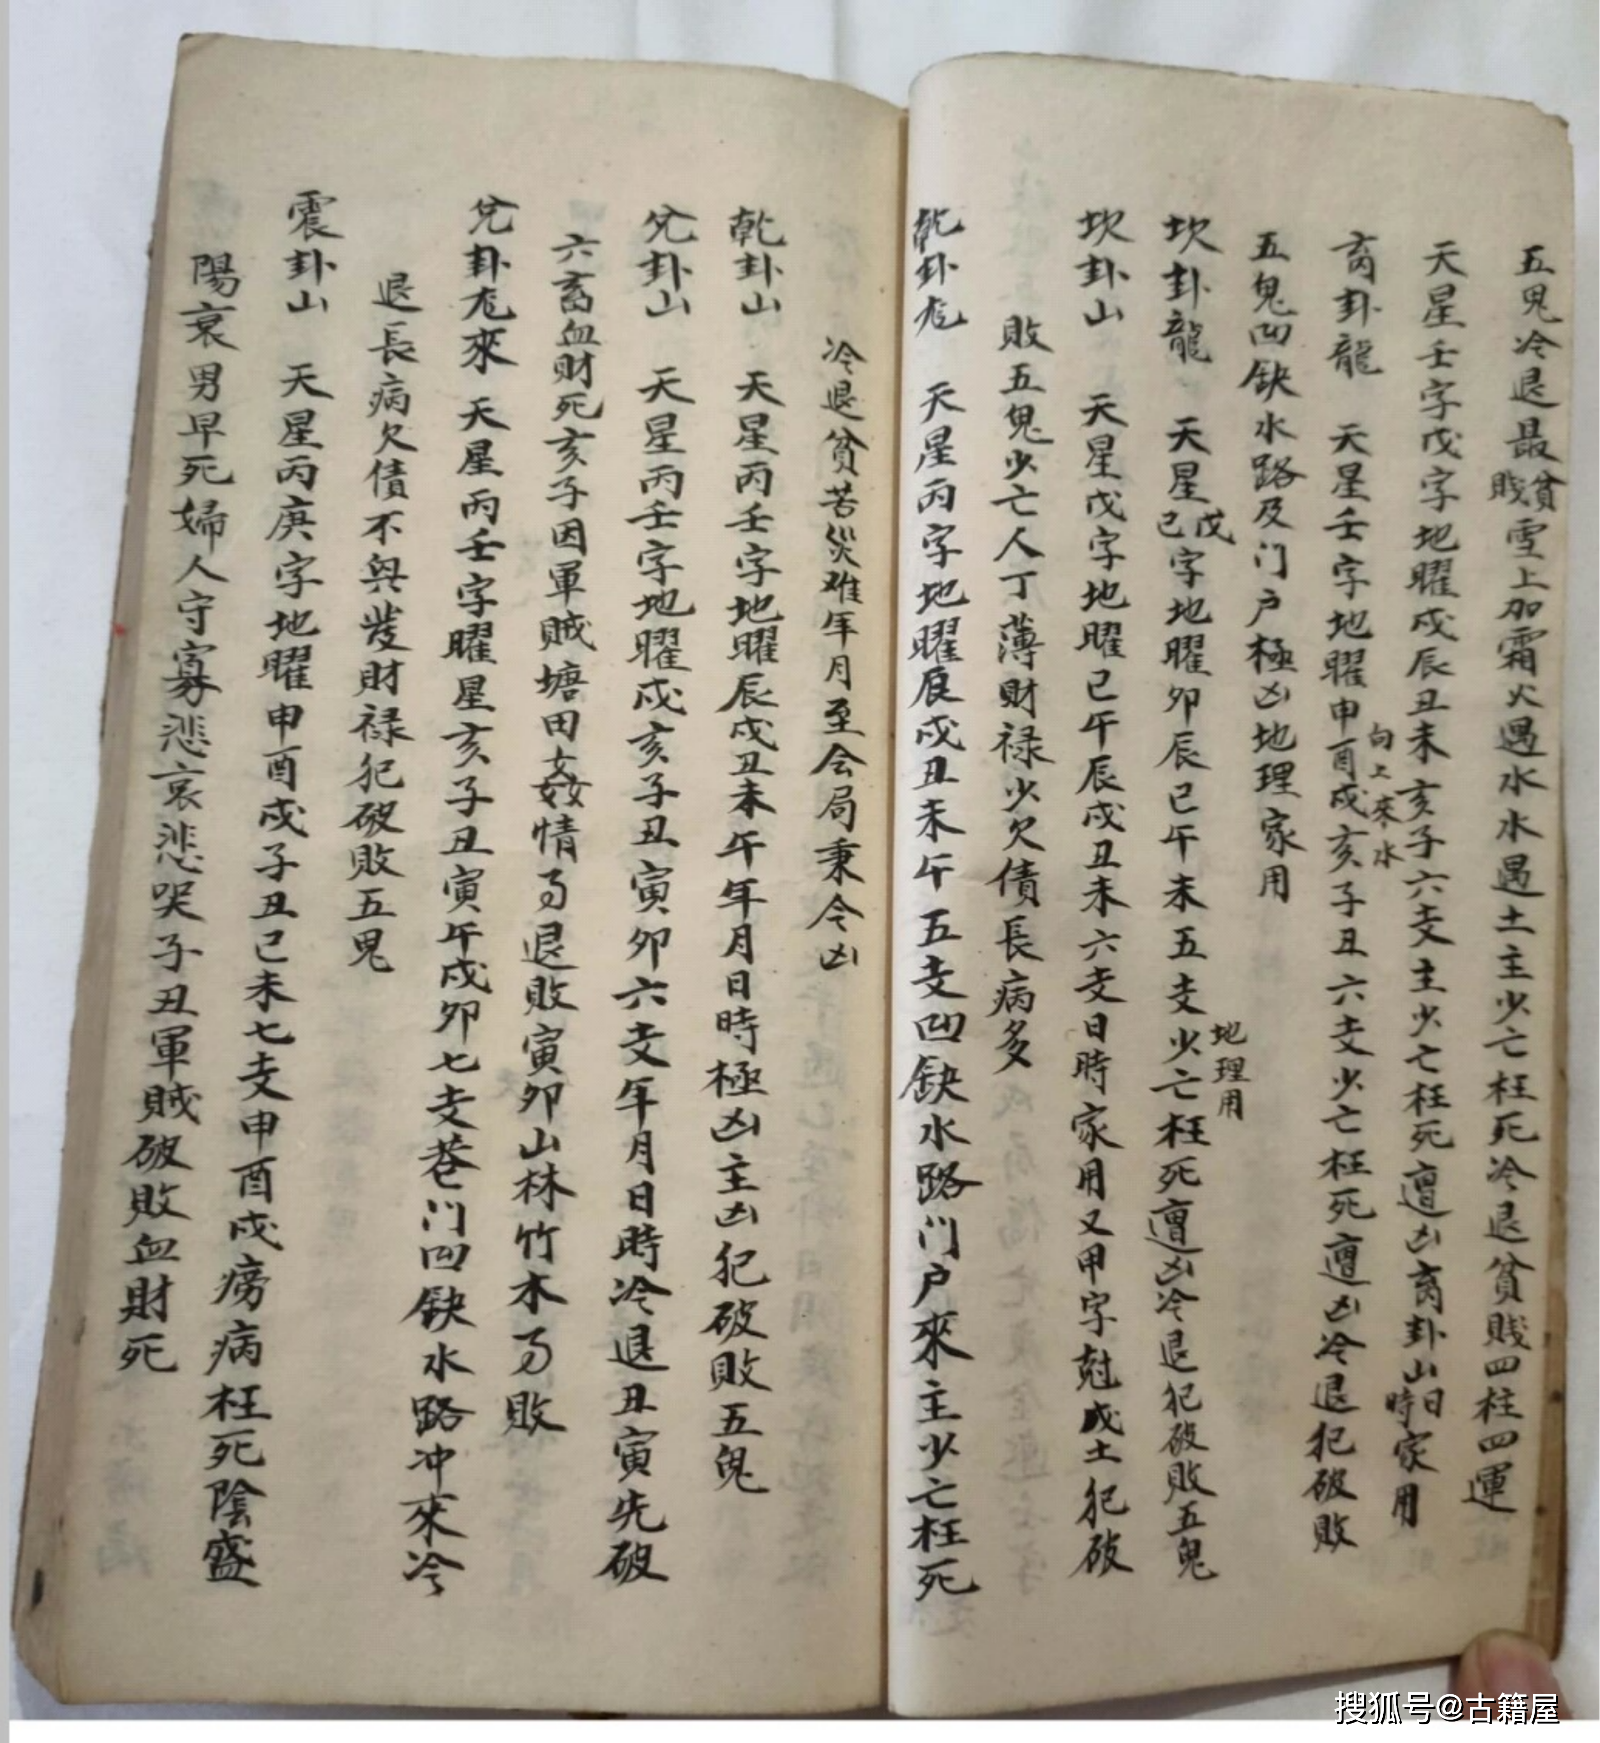 五鬼冷退最貧賤雪上加霜火遇水水遇土主少亡枉死冷退貧賤四柱四運
天星壬字戊字地曜戌辰丑未亥子六支主少亡枉死遭凶离卦山日時家用
离卦龍 天星壬字地曜申酉戌亥子丑六支少亡枉死遭凶冷退犯破敗
向上來水
五鬼凹缺水路及门户極凶地理家用
坎卦龍 天星戊己字地曜卯辰巳午未五支少亡枉死遭凶冷退犯破敗五鬼
地理用
坎卦山 天星戊字地曜巳午辰戌丑未六支日時家用又甲字尅戊土犯破
敗五鬼少亡人丁薄財禄少欠債長病多
乾卦尨 天星丙字地曜辰戌丑未午五支凹缺水路门户來主少亡枉死
冷退貧苦災难年月至会局秉令凶
乾卦山 天星丙壬字地曜辰戌丑未午年月日時極凶主凶犯破敗五鬼
兊卦山 天星丙壬字地曜戌亥子丑寅卯六支年月日時冷退丑寅先破
六畜血財死亥子因軍贼塘田姦情㕝退敗寅卯山林竹木㕝敗
兊卦尨來 天星丙壬字曜星亥子丑寅午戌卯七支巷门凹缺水路冲來冷
退長病欠債不興發財禄犯破敗五鬼
震卦山 天星丙庚字地曜申酉戌子丑巳未七支申酉戌癆病枉死陰盛
陽衰男早死婦人守寡悲哀悲哭子丑軍贼破敗血財死
搜狐号@古籍屋